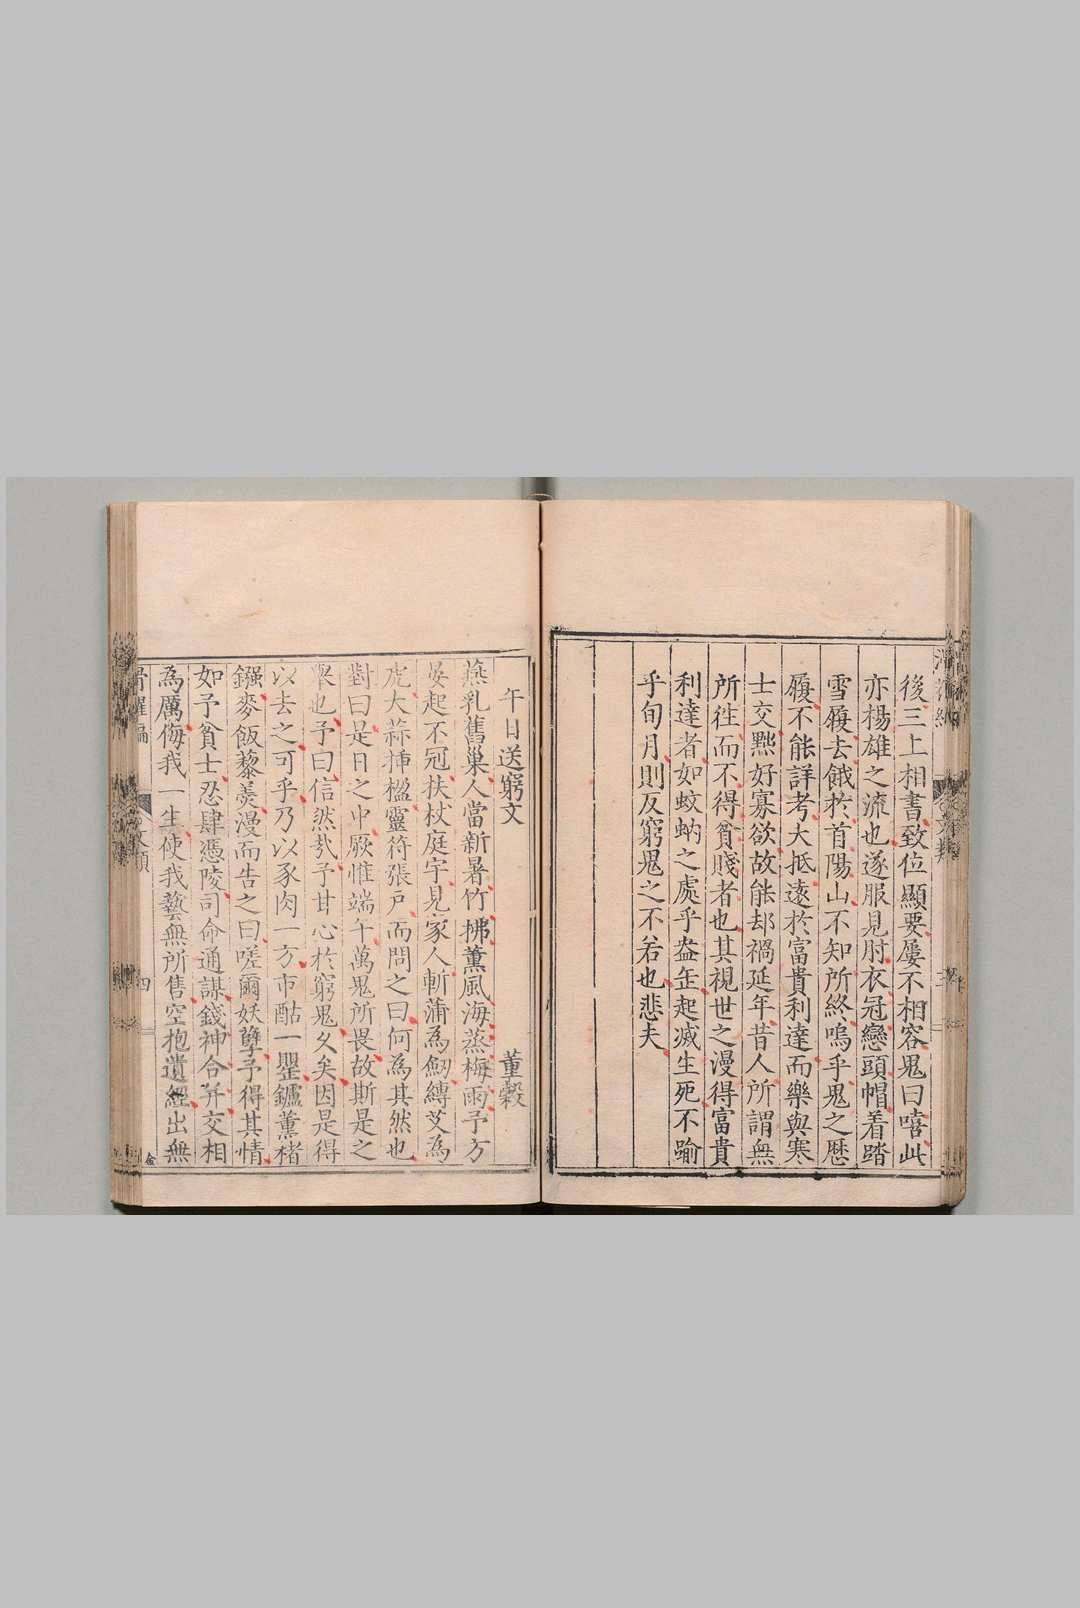 後三上相書致位顯要屢不相容鬼曰嘻此
亦楊雄之流也遂服見肘衣冠戀頭帽着踏
雪履去餓於首陽山不知所終嗚乎鬼之歷
履不能詳考大抵遠於富貴利達而樂與寒
士交黙好寡欲故能却禍延年昔人所謂無
所徃而不得貧賤者也其視世之漫得富貴
利達者如蚊蚋之處乎盎缶起滅生死不踰
乎旬月則反窮鬼之不若也悲夫
午日送窮文
董穀
燕乳舊巢人當新暑竹拂薰風海蒸梅雨予方
晏起不冠扶杖庭宇見家人斬蒲為劒縛艾為
虎大蒜揷楹靈符張戶而問之曰何為其然也
對曰是日之中厥惟端午萬鬼所畏故斯是之
眾也予曰信然哉予甘心於窮鬼久矣因是得
以去之可乎乃以豕肉一方市酤一罌鑪薰楮
鏹麥飯藜羮漫而告之曰嗟爾妖孽予得其情
如予貧士忍肆憑陵司命通謀錢神合并交相
為厲侮我一生使我藝無所售空抱遺經出無
滑耀編
文類
四